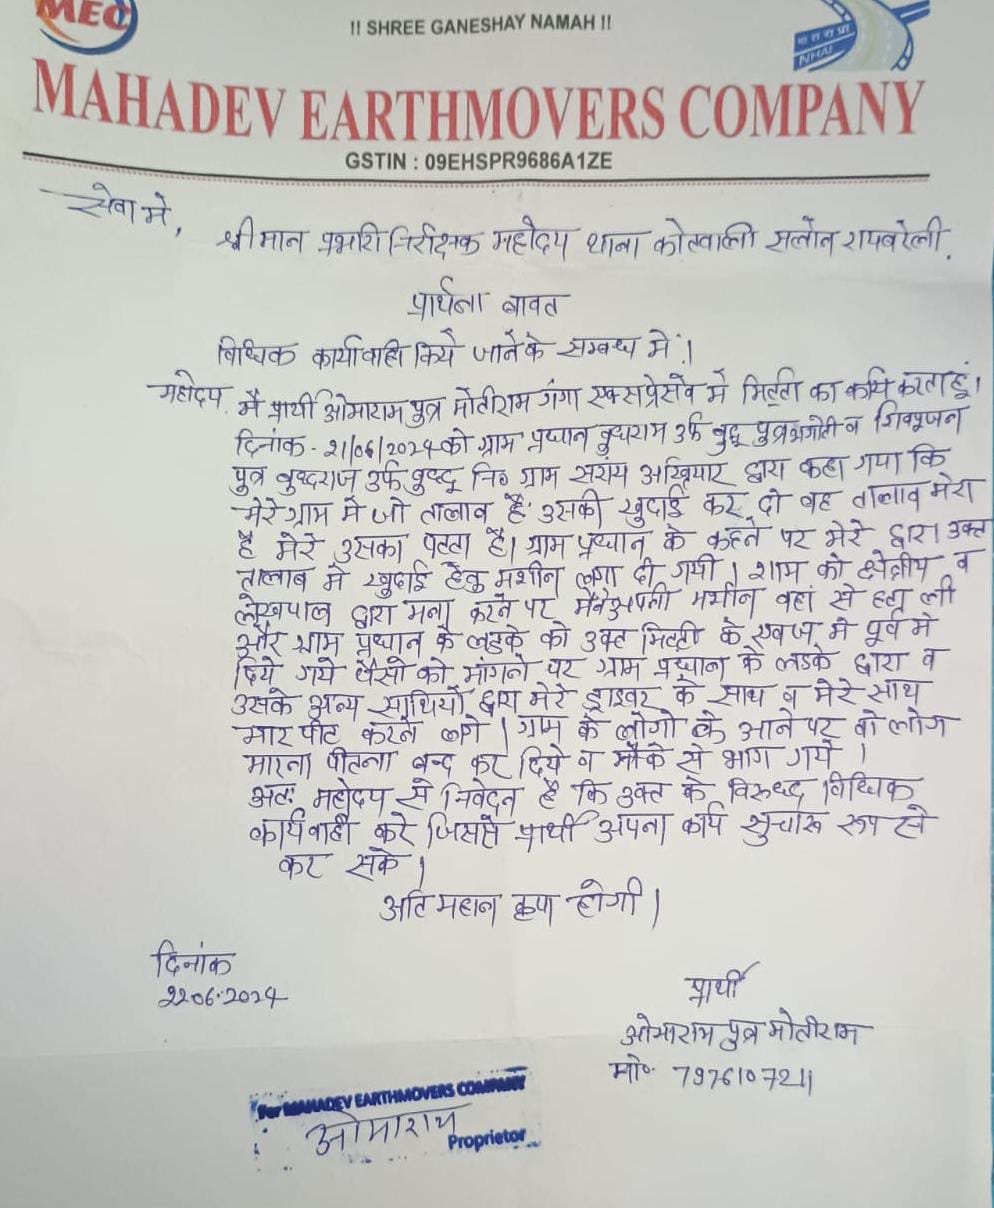 MEC
!! SHREE GANESHAY NAMAH !!
भा रा रा प्रा
NHAI
MAHADEV EARTHMOVERS COMPANY
GSTIN : 09EHSPR9686A1ZE
सेवा मे,
श्री मान प्रभारी निरीक्षक महोदय थाना कोतवाली सलोन रायबरेली.
प्रार्थना बावत
विधिक कार्यावाही किये जाने के सम्बध मे।
महोदय, मै प्रार्थी ओमाराम पुत्र मोतीराम गंगा एक्सप्रेसवे मे मिट्टी का कार्य करता हूं।
दिनांक - 21/06/2024 को ग्राम प्रधान बुधराम उर्फ बुद्धू पुत्र भगौती व शिवपूजन
पुत्र बुधराज उर्फ बुध्दू नि० ग्राम सरांय अखियार द्वारा कहा गया कि
मेरे ग्राम मे जो तालाव है उसकी खुदाई कर दो वह तालाव मेरा
है मेरे उसका पटटा है। ग्राम प्रधान के कहने पर मेरे द्वारा उक्त
तालाब मे खुदाई हेतु मशीन लगा दी गयी। शाम को क्षेत्रीय व
लेखपाल द्वारा मना करने पर मैने अपनी मशीन वहां से हटा ली
और ग्राम प्रधान के लडके को उक्त मिट्टी के एवज मे पूर्व मे
दिये गये पैसो को मांगने पर ग्राम प्रधान के लडके द्वारा व
उसके अन्य साथियों द्वारा मेरे ड्राइवर के साथ व मेरे साथ
मार पीट करने लगे। ग्राम के लोगो के आने पर वो लोग
मारना पीटना बन्द कर दिये व मौके से भाग गये।
अतः महोदय से निवेदन है कि उक्त के विरुध्द विधिक
कार्यवाही करे जिससे प्रार्थी अपना कार्य सुचारू रूप से
कर सके।
अति महान कृपा होगी।
दिनांक
22.06.2024
प्रार्थी
ओमाराम पुत्र मोतीराम
मो० 7976107211
For MAHADEV EARTHMOVERS COMPANY
ओमाराम
Proprietor